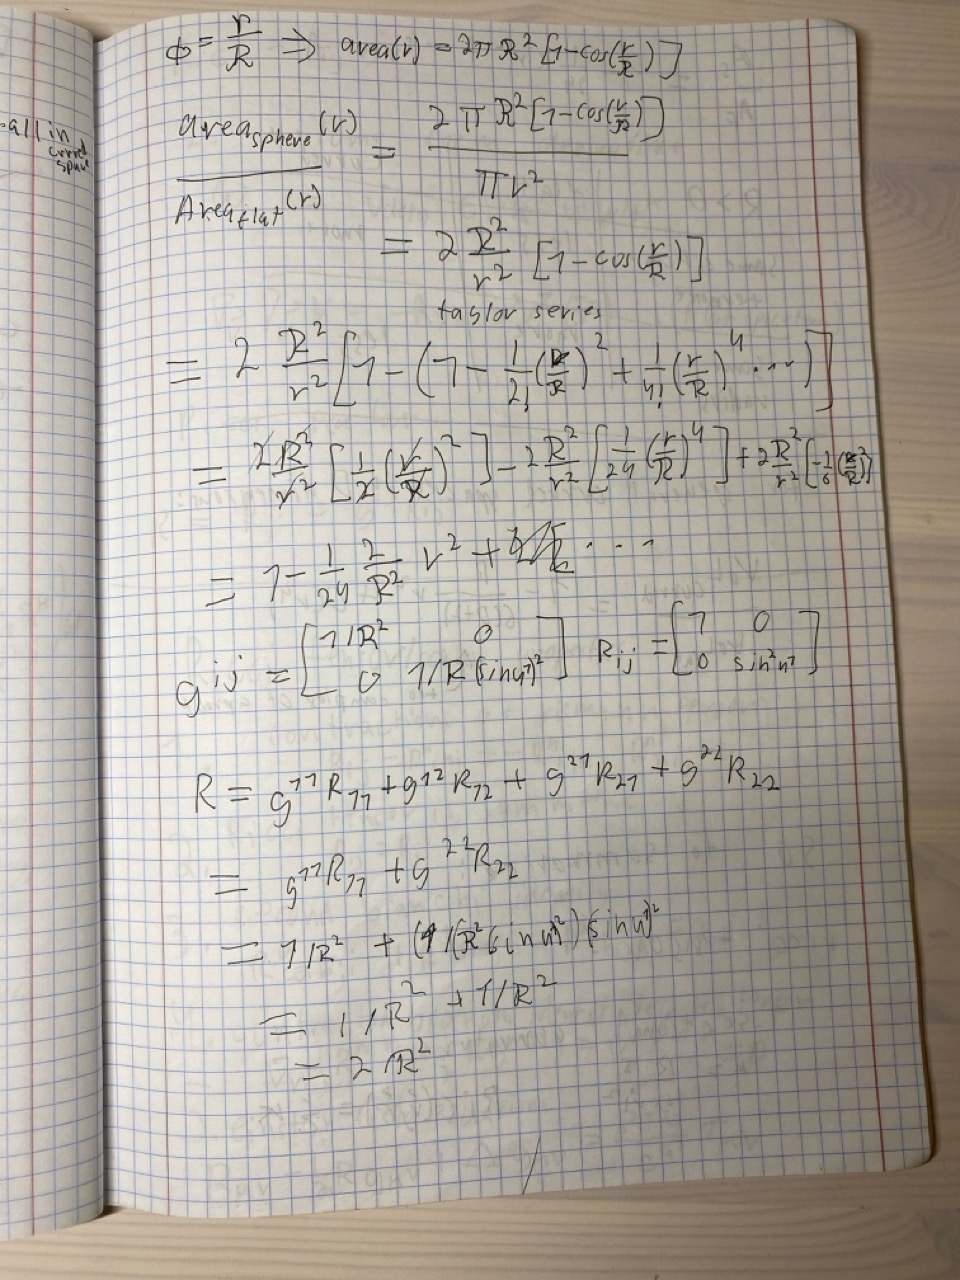 all in
curved
space
ϕ = r/R ⇒ area(r) = 2πR² [1-cos(r/R)]
area_sphere(r) / Area_flat(r) = 2πR²[1-cos(r/R)] / πr²
= 2 R²/r² [1 - cos(r/R)]
taylor series
= 2 R²/r² [1 - (1 - 1/2! (r/R)² + 1/4! (r/R)⁴ ...)]
= 2R²/r² [1/2 (r/R)²] - 2 R²/r² [1/24 (r/R)⁴] + 2 R²/r² [
= 1 - 1/24 2/R² r² + ...
g^ij = [1/R² 0; 0 1/R(sinu¹)²] R_ij = [1 0; 0 sin²u¹]
R = g¹¹R₁₁ + g¹²R₁₂ + g²¹R₂₁ + g²²R₂₂
= g¹¹R₁₁ + g²²R₂₂
= 1/R² + (1/(R²(sinu¹)²)(sinu¹)²
= 1/R² + 1/R²
= 2/R²